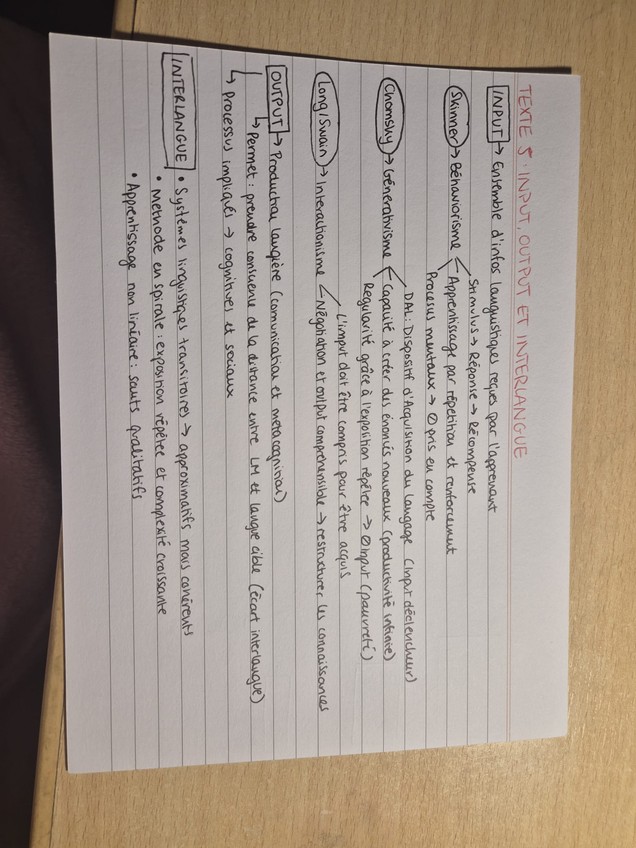 TEXTE 5 : INPUT, OUTPUT ET INTERLANGUE
INPUT → Ensemble d'infos languistiques reçues par l'apprenant
Stimulus → Réponse → Récompense
Skinner → Béhaviorisme < Apprentissage par répétition et renforcement
Procesus mentaux → ∅ pris en compte
DAL : Dispositif d'Acquisition du langage (input déclencheur)
Chomsky → Générativisme < Capacité à créer des énoncés nouveaux (productivité infinie)
Régularité grâce à l'exposition répétée → ∅ input (pauvreté)
L'imput doit être compris pour être acquis
Long/Swain → Interactionisme < Négotiation et output compréhensible → restructurer les connaissances
OUTPUT → Production langière (comunication et métacognition)
↳ Permet : prendre consicence de la distance entre LM et langue cible (écart interlangue)
↳ Processus impliqués → cognitives et sociaux
INTERLANGUE • Systèmes linguistiqes transitoires → approximatifs mais cohérents
• Méthode en spirale : exposition répétée et complexité croissante
• Apprentissage non linéaire : sauts qualitatifs